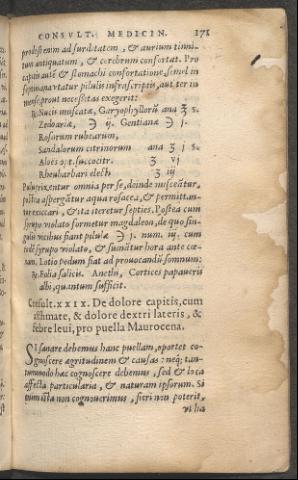 CONSVLT. MEDICIN. 171
prodest enim ad surditatem, & aurium tinni-
tum antiquatum, & cerebrum confortat. Pro
capitis autē & stomachi confortatione, semel in
septimana vtatur pilulis infrascriptis, aut ter in
mense prout necessitas exegerit:
℞. Nucis muscatæ, Garyophyllorū ana ʒ s.
Zedoariæ, ℈ ij. Gentianæ ℈ j.
Rosarum rubearum,
Sandalorum citrinorum ana ʒ j s.
Aloës opt. succotr. ʒ vj
Rheubarbari elect. ʒ iij
Puluerizentur omnia per se, deinde misceātur,
postea aspergātur aqua rosacea, & permittan-
tur exiccari, & ita iteretur septies. Postea cum
syrupo violato formetur magdaleon, de quo sin-
gulis vicibus fiant pilulæ ℈ j. num. iij. cum
eodē syrupo violato, & sumātur hora ante cœ-
nam. Lotio pedum fiat ad prouocandū somnum:
℞. Folia salicis. Anethi, Cortices papaueris
albi, quantum sufficit.
Consult. XXIX. De dolore capitis, cum
asthmate, & dolore dextri lateris, &
febre leui, pro puella Maurocena.
SI sanare debemus hanc puellam, oportet co-
gnoscere ægritudinem & causas: neq; tan-
tummodo hæc cognoscere debemus, sed & loca
affecta particularia, & naturam ipsorum. Si
enim ista non cognouerimus, fieri non poterit,
vt ha